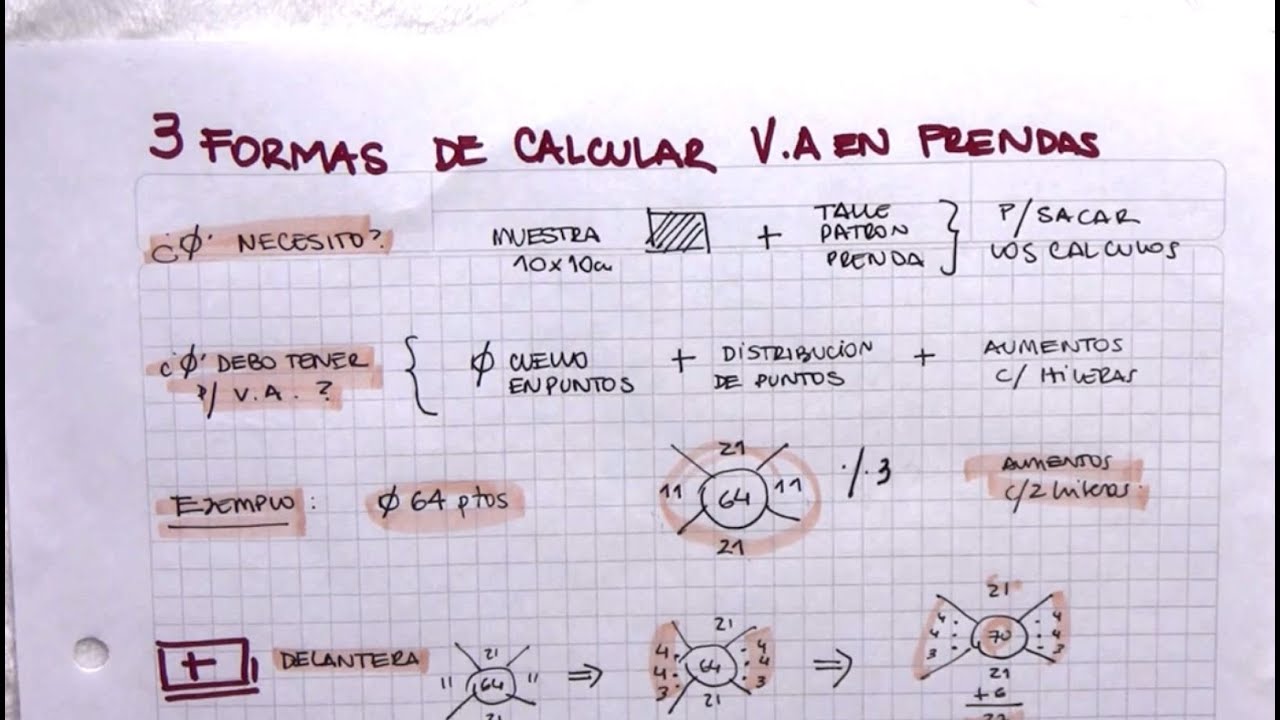 3 FORMAS DE CALCULAR V.A EN PRENDAS
¿Ø' NECESITO?
MUESTRA
10x10cm
+
TALLE
PATRON
PRENDA
P/SACAR
LOS CALCULOS
¿Ø' DEBO TENER
P/ V.A. ?
Ø CUELLO
EN PUNTOS
+
DISTRIBUCION
DE PUNTOS
+
AUMENTOS
C/ HILERAS
EJEMPLO :
Ø 64 ptos
21
11 64 11
21
·/·3
AUMENTOS
c/2 hileras.
+ DELANTERA
21
11 64 11
21
⇒
21
4 4
4 64 4
3 3
21
⇒
21
4 4
4 70 4
3 3
21
+6
27